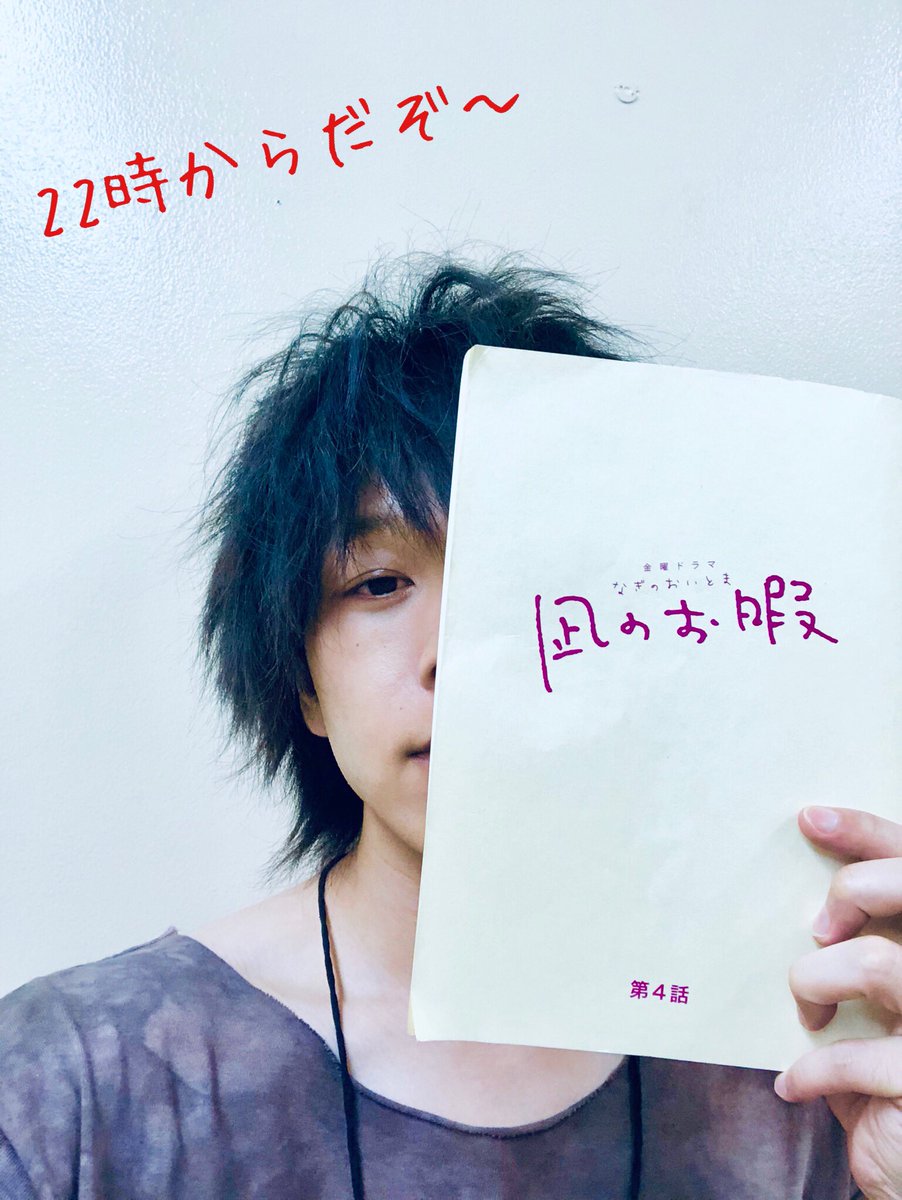 22時からだぞ〜
金曜ドラマ
なぎのおいとま
凪のお暇
第4話